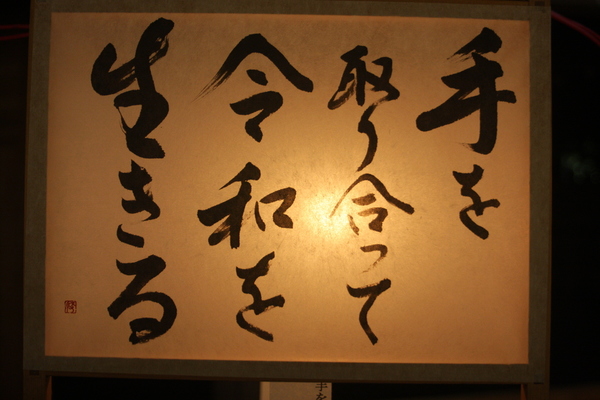 手を
取り合って
令和を
生きる
手を